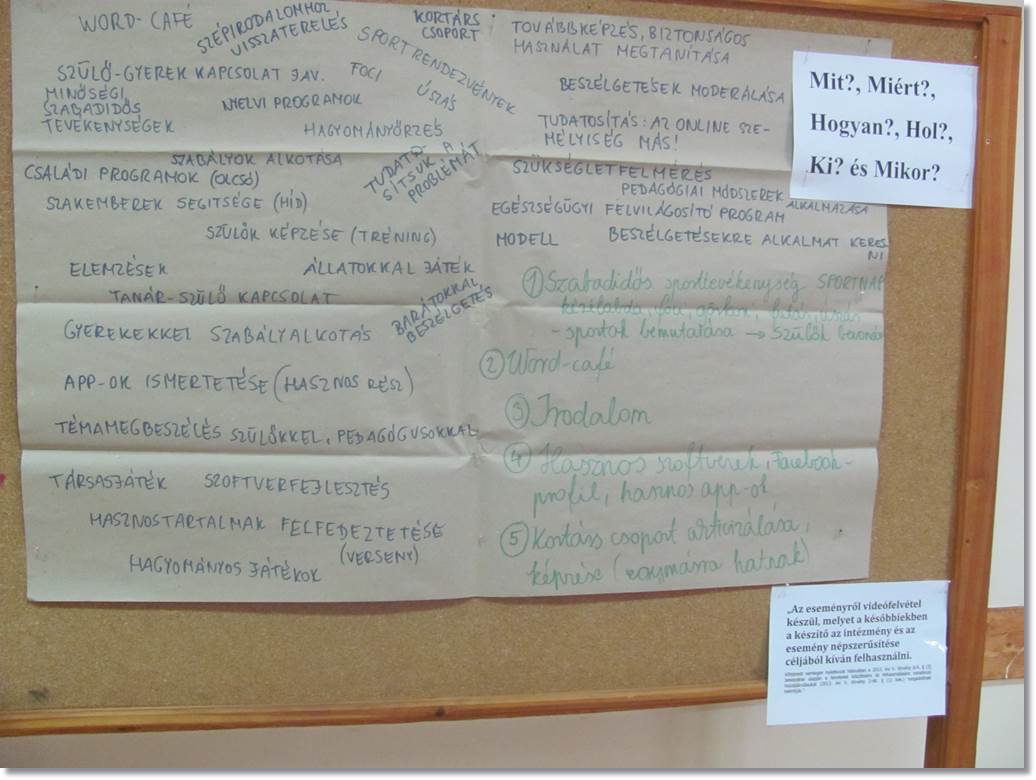 WORD-CAFÉ
SZÉPIRODALOMHOZ
VISSZATERELÉS
KORTÁRS
CSOPORT
SPORTRENDEZVÉNYEK
SZÜLŐ-GYEREK KAPCSOLAT JAV.
FOCI
ÚSZÁS
MINŐSÉGI
SZABADIDŐS
TEVÉKENYSÉGEK
NYELVI PROGRAMOK
HAGYOMÁNYŐRZÉS
SZABÁLYOK ALKOTÁSA
TUDATO-
SÍTSUK A
PROBLÉMÁT
CSALÁDI PROGRAMOK (OLCSÓ)
SZAKEMBEREK SEGITSÉGE (HÍD)
SZÜLŐK KÉPZÉSE (TRÉNING)
ELEMZÉSEK
ÁLLATOKKAL JÁTÉK
TANÁR-SZÜLŐ KAPCSOLAT
BARÁTOKKAL
BESZÉLGETÉS
GYEREKEKKEL SZABÁLYALKOTÁS
APP-OK ISMERTETÉSE (HASZNOS RÉSZ)
TÉMAMEGBESZÉLÉS SZÜLŐKKEL, PEDAGÓGUSOKKAL
TÁRSASJÁTÉK
SZOFTVERFEJLESZTÉS
HASZNOSTARTALMAK FELFEDEZTETÉSE
(VERSENY)
HAGYOMÁNYOS JÁTÉKOK
TOVÁBBKÉPZÉS, BIZTONSÁGOS
HASZNÁLAT MEGTANÍTÁSA
BESZÉLGETÉSEK MODERÁLÁSA
TUDATOSÍTÁS: AZ ONLINE SZE-
MÉLYISÉG MÁS!
SZÜKSÉGLETFELMÉRÉS
PEDAGÓGIAI MÓDSZEREK
ALKALMAZÁSA
EGÉSZSÉGÜGYI FELVILÁGOSÍTÓ PROGRAM
MODELL
BESZÉLGETÉSEKRE ALKALMAT KERES
NI
① Szabadidős sporttevékenység SPORTNAP
kézilabda, foci,
- sportok bemutatása → Szülők
② Word-café
③ Irodalom
④ Hasznos szoftverek, Facebook-
profil, hasznos app-ok
⑤ Kortárs csoport aktivizálása,
képzése (egymásra hatnak)
Mit?, Miért?,
Hogyan?, Hol?,
Ki? és Mikor?
„Az eseményről videófelvétel
készül, melyet a későbbiekben
a készítő az intézmény és az
esemény népszerűsítése
céljából kíván felhasználni.